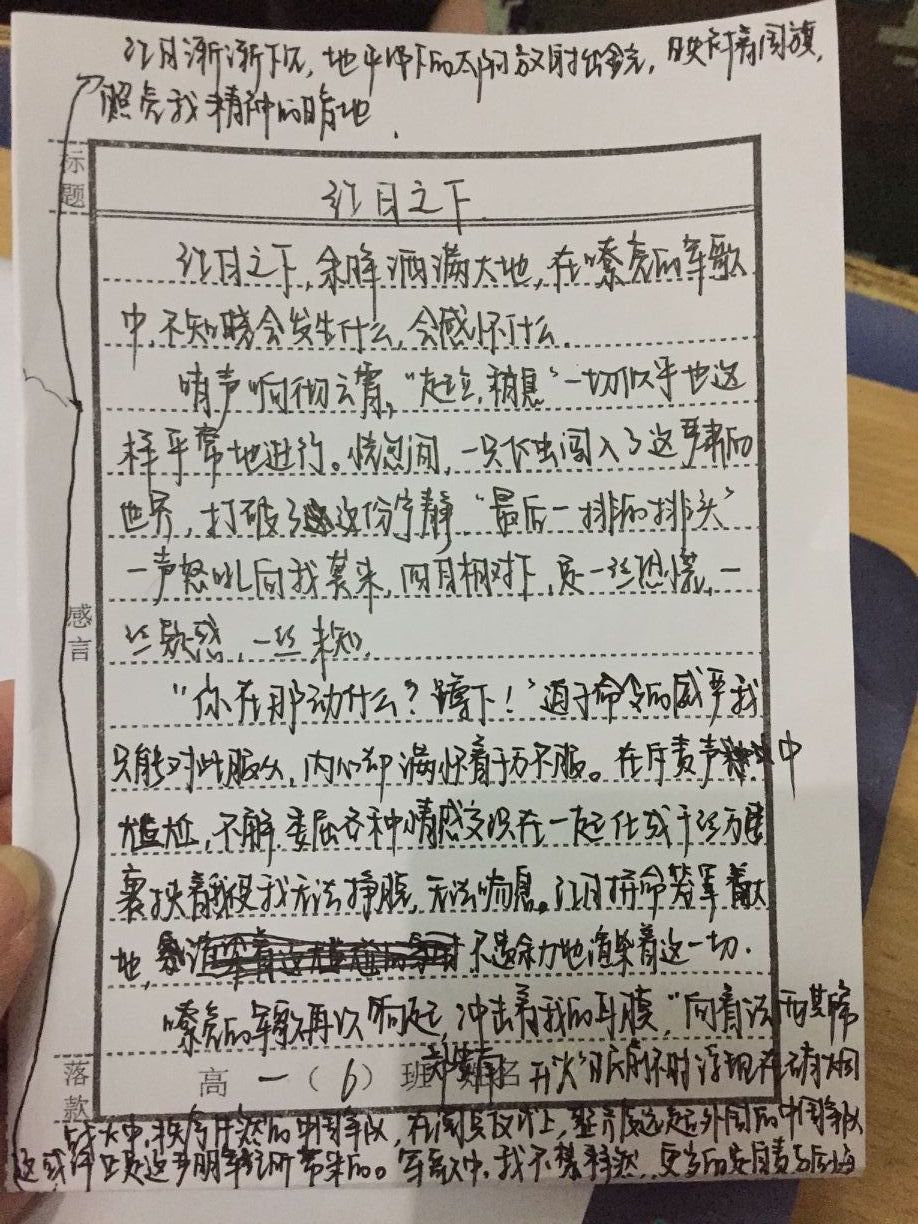 红月渐渐下沉，地平线下的太阳放射出金光，映衬着国旗，
照亮我精神的暗地．
标题
红月之下．
红月之下，余晖洒满大地，在嘹亮的军歌
中，不知晓会发生什么，会感怀什么．
哨声响彻云霄，“起立，稍息”一切似乎也这
样平常地进行。恍忽间，一只飞虫闯入了这严肃的
世界，打破了这份宁静“最后一排的排头”
一声怒吼向我袭来，四目相对下，是一丝恐慌，一
丝疑惑，一丝未知．
感言
“你在那动什么？蹲下！”迫于命令的威严我
只能对此服从，内心却满怀着千万不服。在斥责声中
尴尬，不解，委屈各种情感交织在一起化成千丝万缕
裹挟着我使我无法挣脱，无法喘息。红月拼命笼罩着大
地，不遗余力地渲染着这一切．
嘹亮的军歌再次响起，冲击着我的耳膜，“向着法西斯蒂
开火”眼前不时浮现在硝烟
落款
高一（6）班 姓名
战火中，秩序井然的中国军队，在阅兵仪式上，整齐度远超外国的中国军队
这或许正是这严明军纪所带来的。军歌中，我不禁释然，更多的是自责与后悔